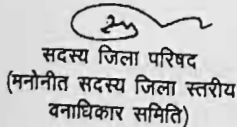 सदस्य जिला परिषद
(मनोनीत सदस्य जिला स्तरीय
वनाधिकार समिति)